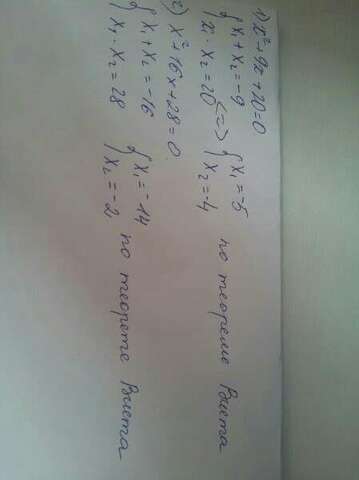 1) x²+9x+20=0
{ x₁+x₂=-9
x₁·x₂=20 <=> { x₁=-5
x₂=-4 по теореме Виета
2) x²+16x+28=0
{ x₁+x₂=-16
x₁·x₂=28 { x₁=-14
x₂=-2 по теорете Виета